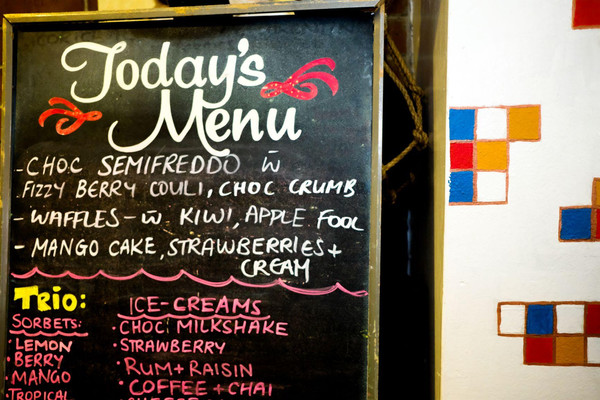 Today's
Menu
- CHOC SEMIFREDDO W̄
- FIZZY BERRY COULI, CHOC CRUMB
- WAFFLES - W̄ KIWI, APPLE FOOL
- MANGO CAKE, STRAWBERRIES +
CREAM
TRIO:
SORBETS:
· LEMON
· BERRY
· MANGO
· TROPICAL
ICE-CREAMS
· CHOC MILKSHAKE
· STRAWBERRY
· RUM + RAISIN
· COFFEE + CHAI